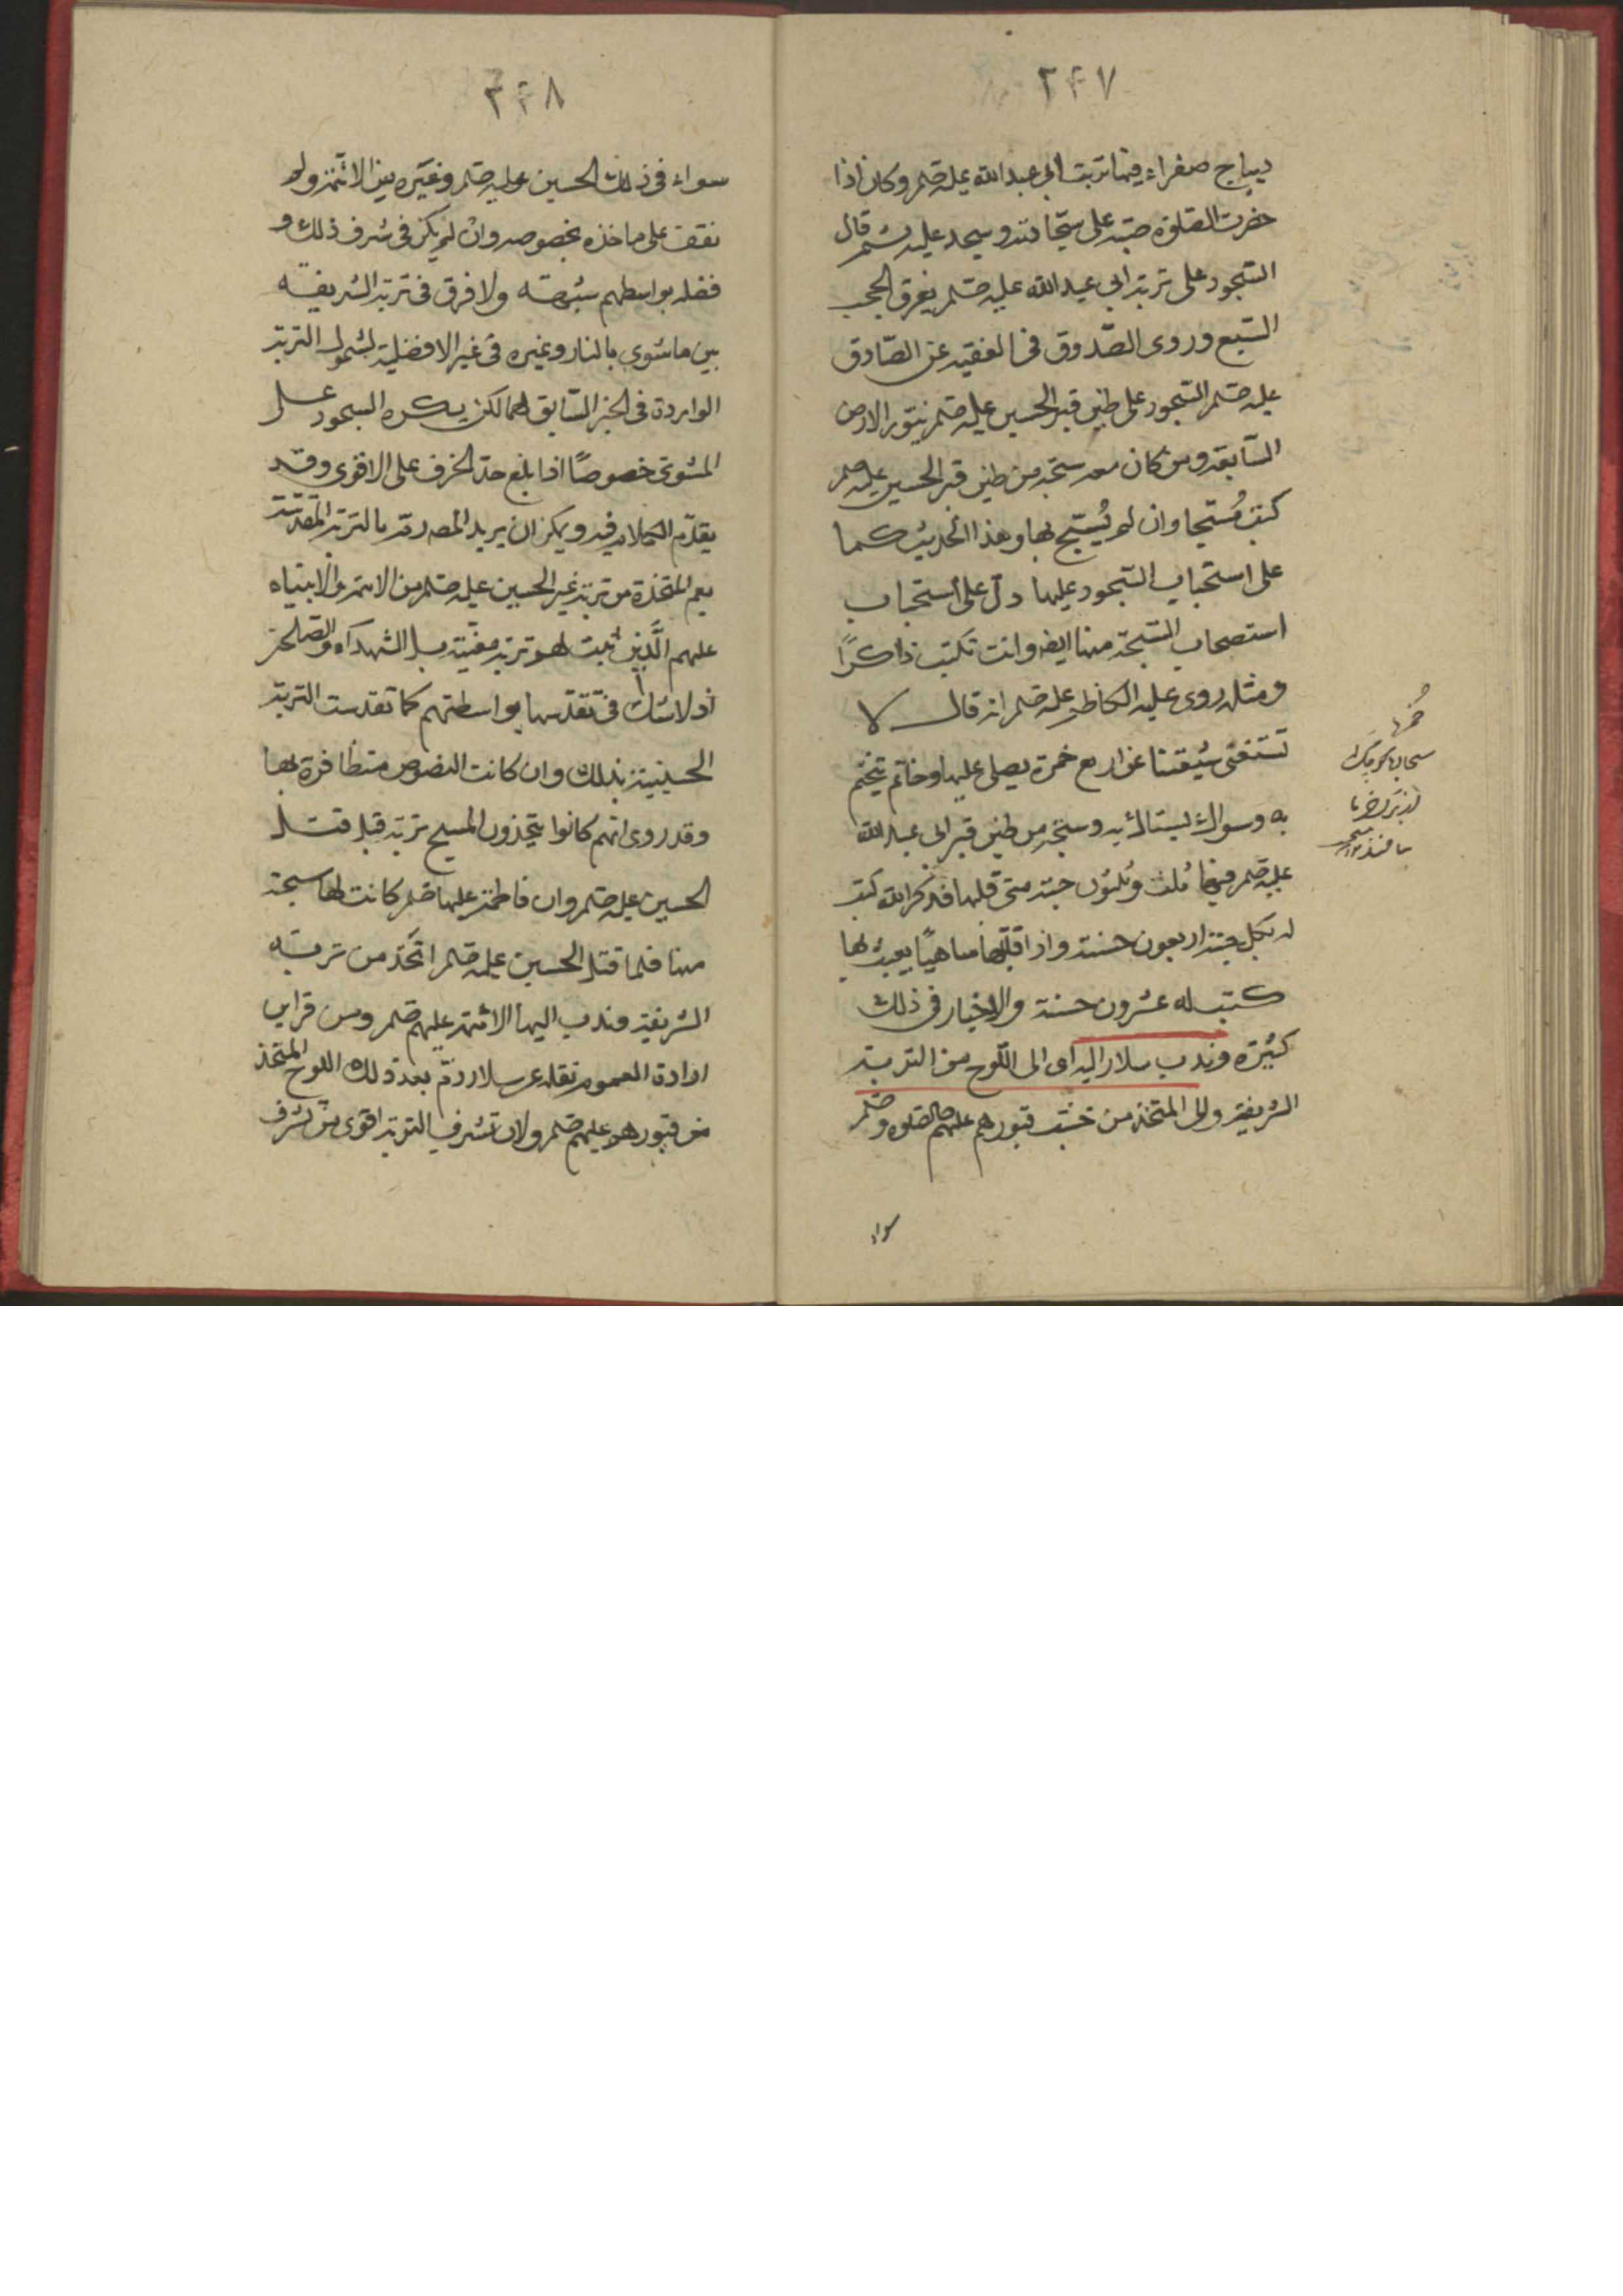 ٢٤٧
ديباج صفراء فيها تربة ابى عبد الله عليه صلم وكان اذا
حضرت الصلوة صبّه على سجّادته وسجد عليه ثم قال
السّجود على تربة ابى عبد الله عليه صلم يخرق الحجب
السّبع وروى الصّدوق فى الفقيه عن الصّادق
عليه صلم السّجود على طين قبر الحسين عليه صلم ينوّر الارض
السّابعة ومن كان معه سبحة من طين قبر الحسين عليه صلم
كتب مُسبّحا وان لم يُسبّح بها وهذا الحديث كما
على استحباب السّجود عليها دلّ على استحباب
استصحاب السّبحة منها ايضا وانت تكتب ذاكرًا
ومثله روى عليه الكاظم عليه صلم انه قال لا
تستغنى شيعتنا عن اربع خمرة يصلى عليها وخاتم يتختم
به وسواك يستاك به وسبحة من طين قبر ابى عبد الله
عليه صلم فيها ثلث وثلثون حبّة متى قلبها فذكر الله كتب
له بكل حبّة اربعون حسنة واذا قلّبها ساهيًا يعبث بها
كتب له عشرون حسنة والاخبار فى ذلك
كثيرة وندب سلار اليه اى الى اللّوح من التربة
الشريفة والى المتخذ من خشب قبورهم عليهم الصلوة و صلم
سواء
خمرة
٢٤٨
سواء فى ذلك الحسين عليه صلم وغيره من الائمّة ولم
نقف على ماخذه بخصوصه وان لم يكن فى شرف ذلك و
فضله بواسطهم شبهة ولا فرق فى تربته الشريفة
بين ما شوى بالنار وغيره فى غير الافضلية لشمول التربة
الواردة فى الخبر السّابق لهما لكن يكره السجود على
المشوى خصوصًا اذا بلغ حدّ الخزف على الاقوى وقد
يقدّم الكلام فيه ويمكن ان يريد المصه ره بالتربة المقدّسة
يعم المتخذة من تربة غير الحسين عليه صلم من الائمة والانبياء
عليهم الَّذين ثبت لهم تربة معيّنة بل الشهداء والصّلحين
اذ لا شك فى تقدّسها بواسطتهم كما تقدست التربة
الحسينية بذلك وان كانت النصوص متظافرة بها
وقد روى انهم كانوا يتخذون المسبح تربة قبل قتل
الحسين عليه صلم وان فاطمة عليها صلم كانت لها سبحة
منها فلما قتل الحسين عليه صلم اتّخذ من تربته
الشريفة وندب اليها الائمة عليهم صلم ومن قراين
ارادة العموم نقله عن سلار ره بعد ذلك اللوح المتخذ
من قبورهم عليهم صلم ولان تشرف التربة اقوى من تشرف